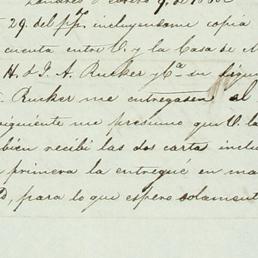 Londres Enero 9, de 1860
29. del pp.do incluyendome copia
cuenta entre V. y la Casa de M
H. & J. A. Rucker y C.a su liqui
Rucker me entregasen al
siguiente me presumo que V. la
bién recibí las dos carta inclu
primera la entregué en ma
para lo que espero solament